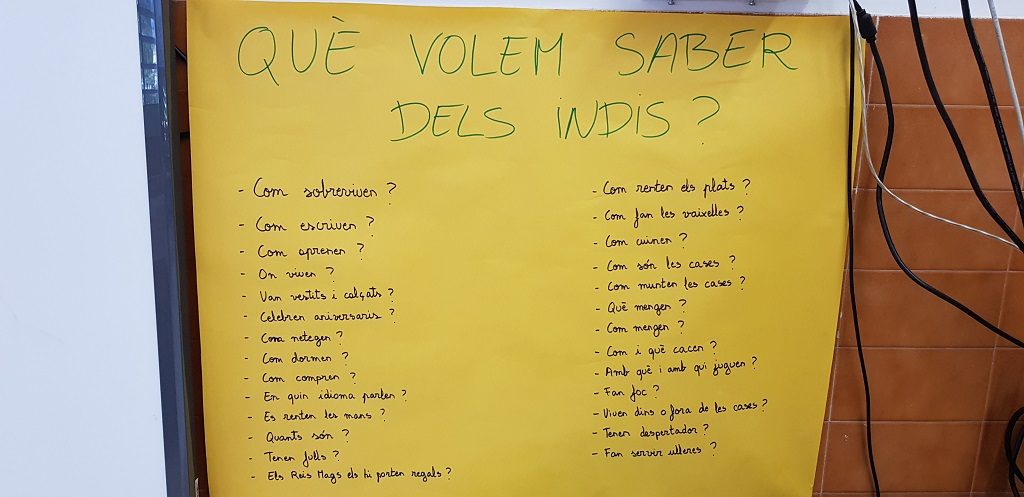 QUÈ VOLEM SABER
DELS INDIS ?
- Com sobreviven ?
- Com escriven ?
- Com aprenen ?
- On viven ?
- Van vestits i calçats ?
- Celebren aniversaris ?
- Com netegen ?
- Com dormen ?
- Com compren ?
- En quin idioma parlen ?
- Es renten les mans ?
- Quants són ?
- Tenen fills ?
- Els Reis Mags els hi porten regals ?
- Com renten els plats ?
- Com fan les vaixelles ?
- Com cuinen ?
- Com són les cases ?
- Com munten les cases ?
- Què mengen ?
- Com mengen ?
- Com i què cacen ?
- Amb què i amb qui juguen ?
- Fan foc ?
- Viven dins o fora de les cases ?
- Tenen despertador ?
- Fan servir ulleres ?